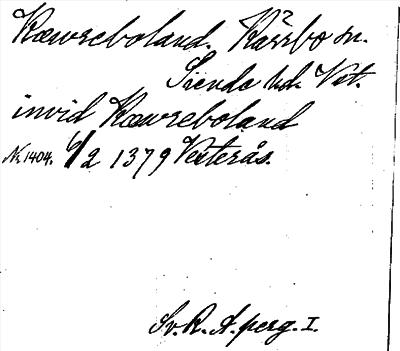 Kæwreboland. Kärrbo sn.
Siende hd. Vst.
invid Kæwreboland
Nr 1404. 6/2 1379 Vesterås.
Sv. R. A. perg. I.